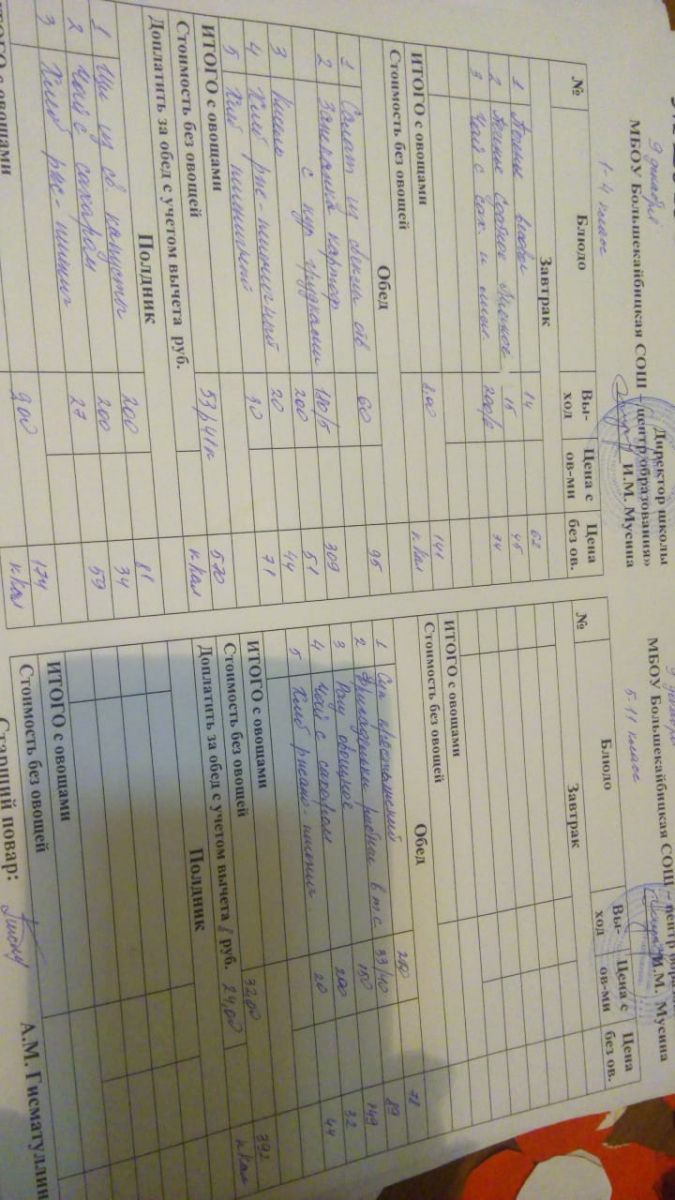 9 декабря
1-4 класс
Директор школы
МБОУ Большекайбицкая СОШ – центр образования»
И.М. Мусина
№ Блюдо Вы-ход Цена с ов-ми Цена без ов.
Завтрак
1 14 62
2 15 45
3 Чай с сах. и лим. 200/ 34
ИТОГО с овощами 141
Стоимость без овощей 8.00 к кал
Обед
1 Салат из свеклы отв 60 95
2 Запеканка картоф 180/5 309
с кур грудками 200 51
3 Кисель 20 44
4 Хлеб рже-пшеничный 30 71
5 Хлеб пшеничный
ИТОГО с овощами 570
Стоимость без овощей к кал
Доплатить за обед с учетом вычета руб.
Полдник
1 Щи из св капусты 200 81
2 Чай с сахаром 200 34
3 Хлеб рже-пшенич 27 59
ИТОГО с овощами 174
900 к кал
9 декабря
5-11 класс
МБОУ Большекайбицкая СОШ – центр
И.М. Мусина
№ Блюдо Вы-ход Цена с ов-ми Цена без ов.
Завтрак
ИТОГО с овощами
Стоимость без овощей
Обед
1 Суп крестьянский 250 78
2 Фрикадельки рыбные в т.с. 53/40 89
3 Рагу овощное 150 149
4 Чай с сахаром 200 32
5 Хлеб ржано-пшенич 20 44
ИТОГО с овощами 32,00 392
Стоимость без овощей к кал
Доплатить за обед с учетом вычета 8 руб. 24,00
Полдник
ИТОГО с овощами
Стоимость без овощей
Старший повар: А.М. Гисматуллин